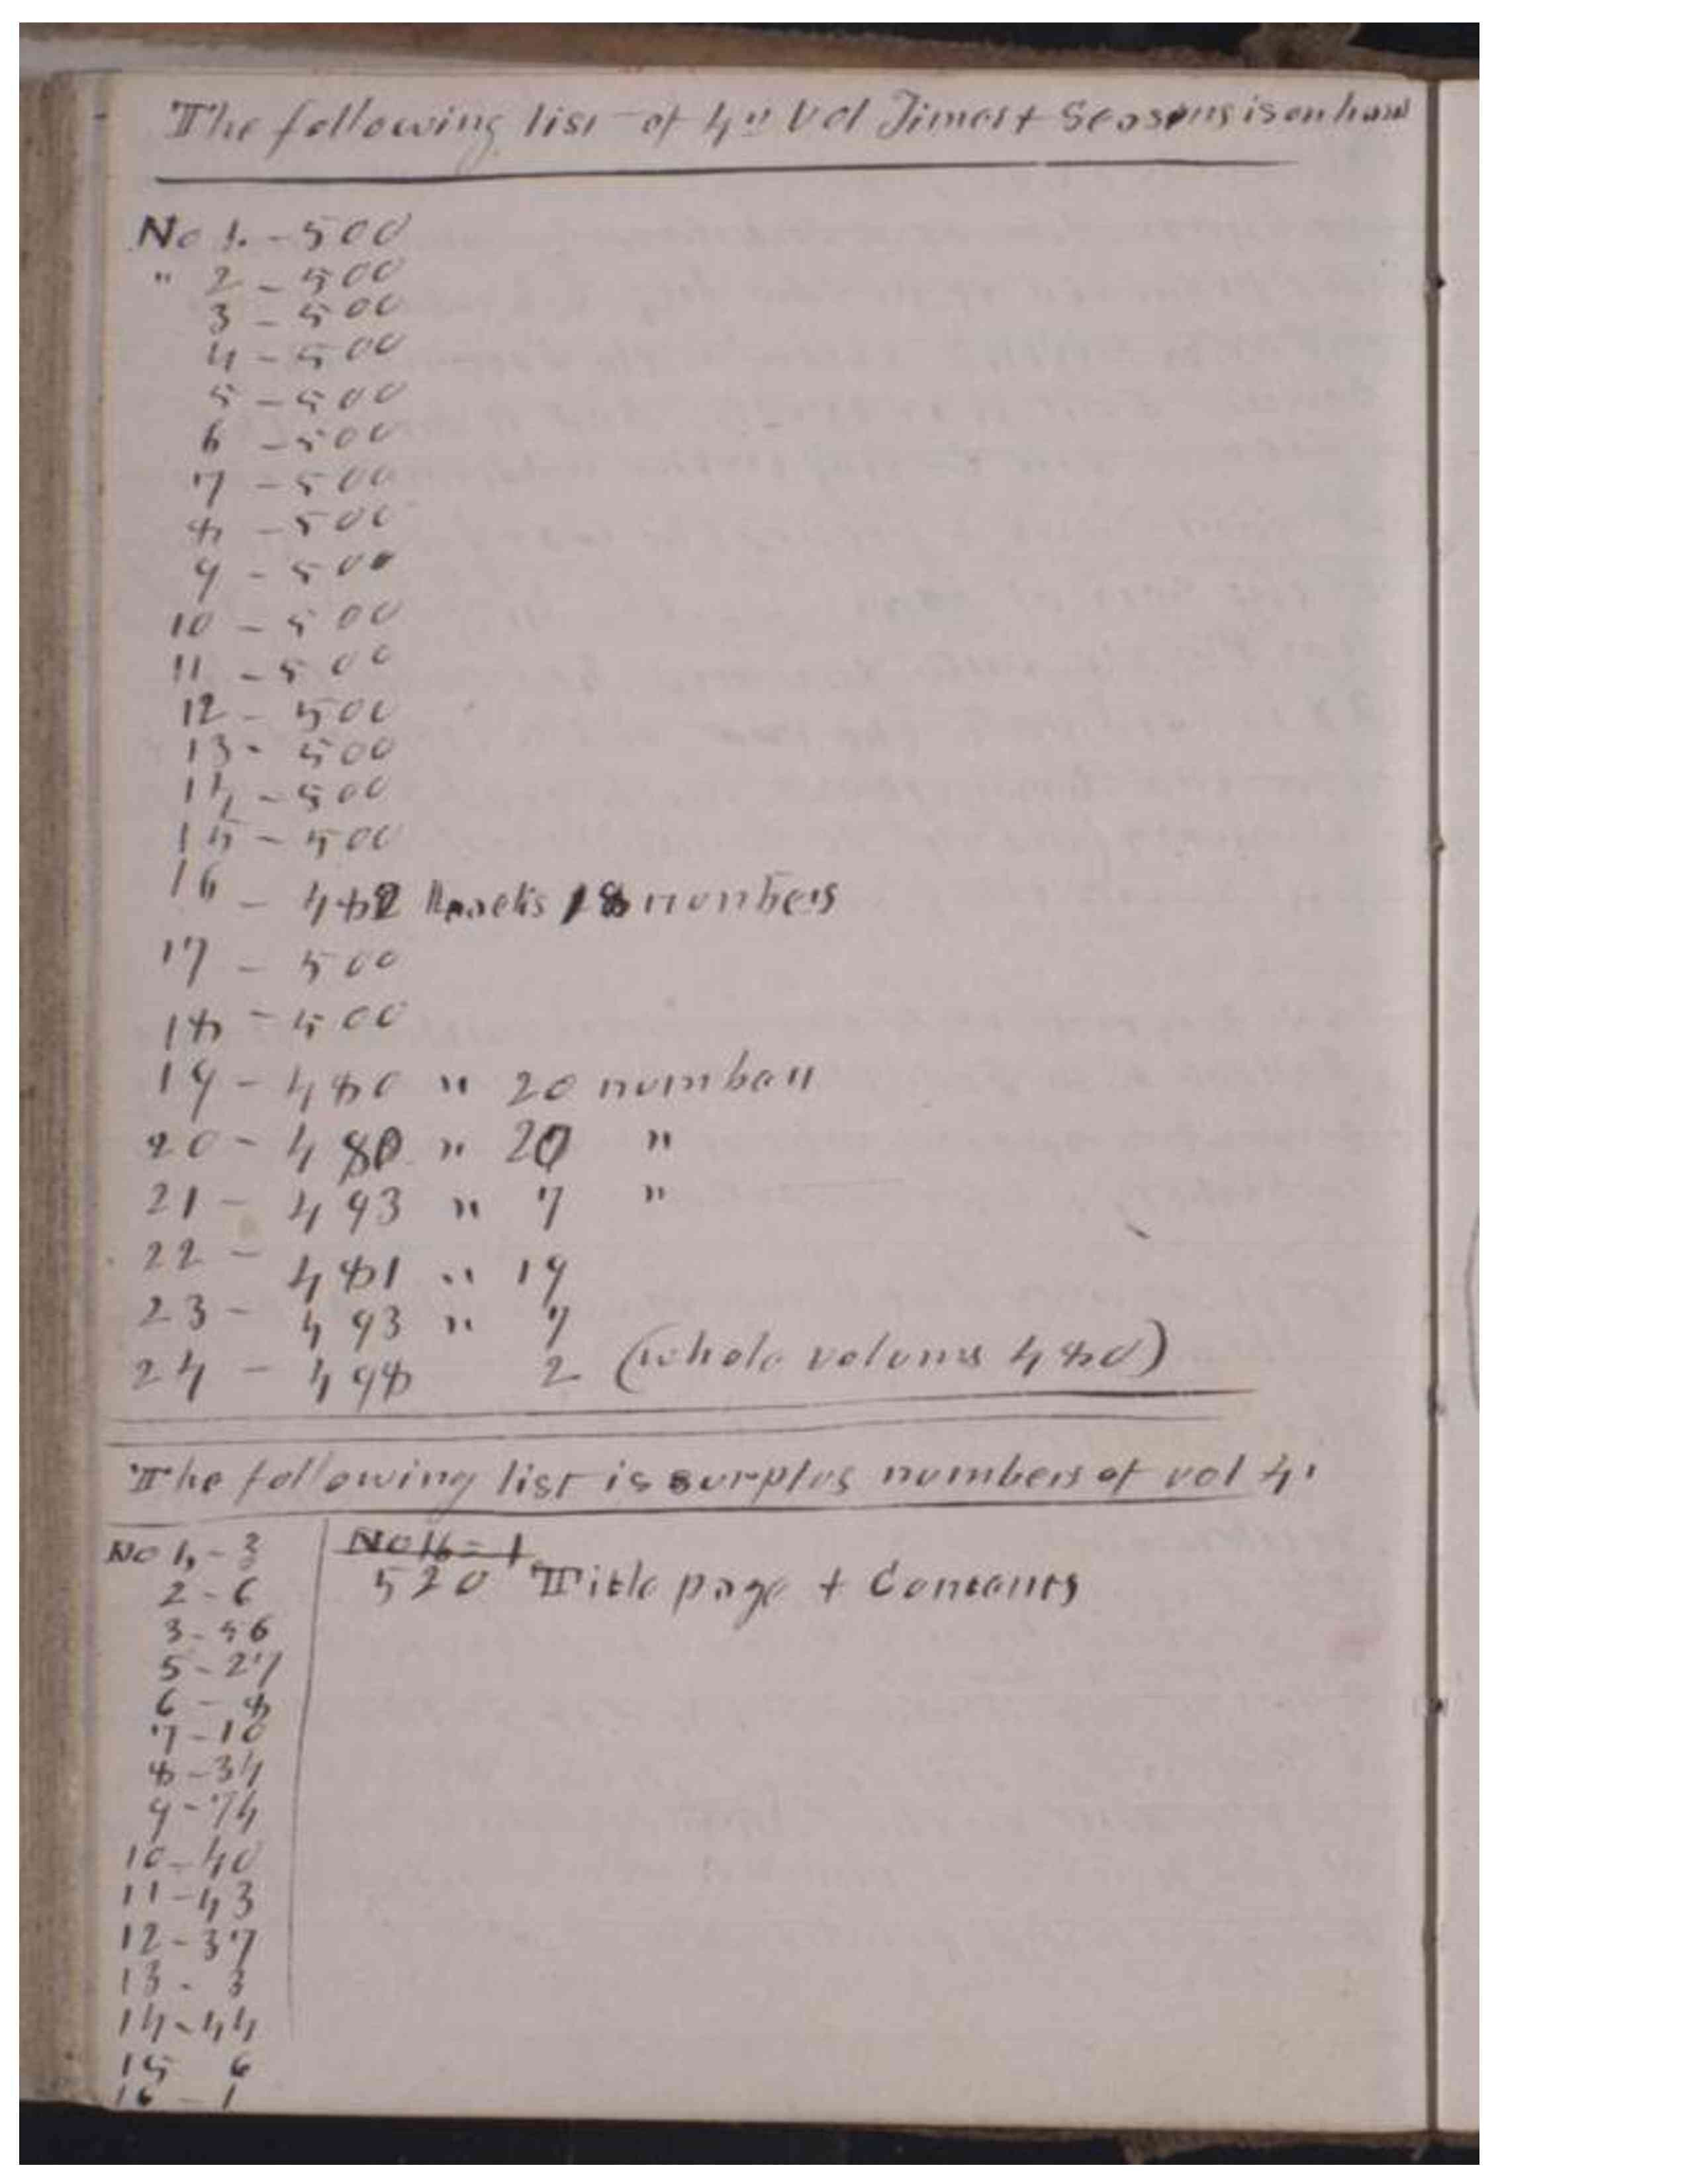 The following list of 4" Vol Times + Seasons is on hand
No 1. - 500
" 2 - 500
3 - 500
4 - 500
5 - 500
6 - 500
7 - 500
8 - 500
9 - 500
10 - 500
11 - 500
12 - 500
13 - 500
14 - 500
15 - 500
16 - 482 lacks 18 numbers
17 - 500
18 - 500
19 - 480 " 20 numbers
20 - 480 " 20 "
21 - 493 " 7 "
22 - 481 " 19
23 - 493 " 7
24 - 498 2 (whole volums 480)
The following list is surplus numbers of vol 4.
No 1, - 3
2 - 6
3 - 56
5 - 27
6 - 8
7 - 10
8 - 34
9 - 74
10 - 40
11 - 43
12 - 37
13 - 3
14 - 44
15 6
16 - 1
No 16 = 1
520 Title page + Contents